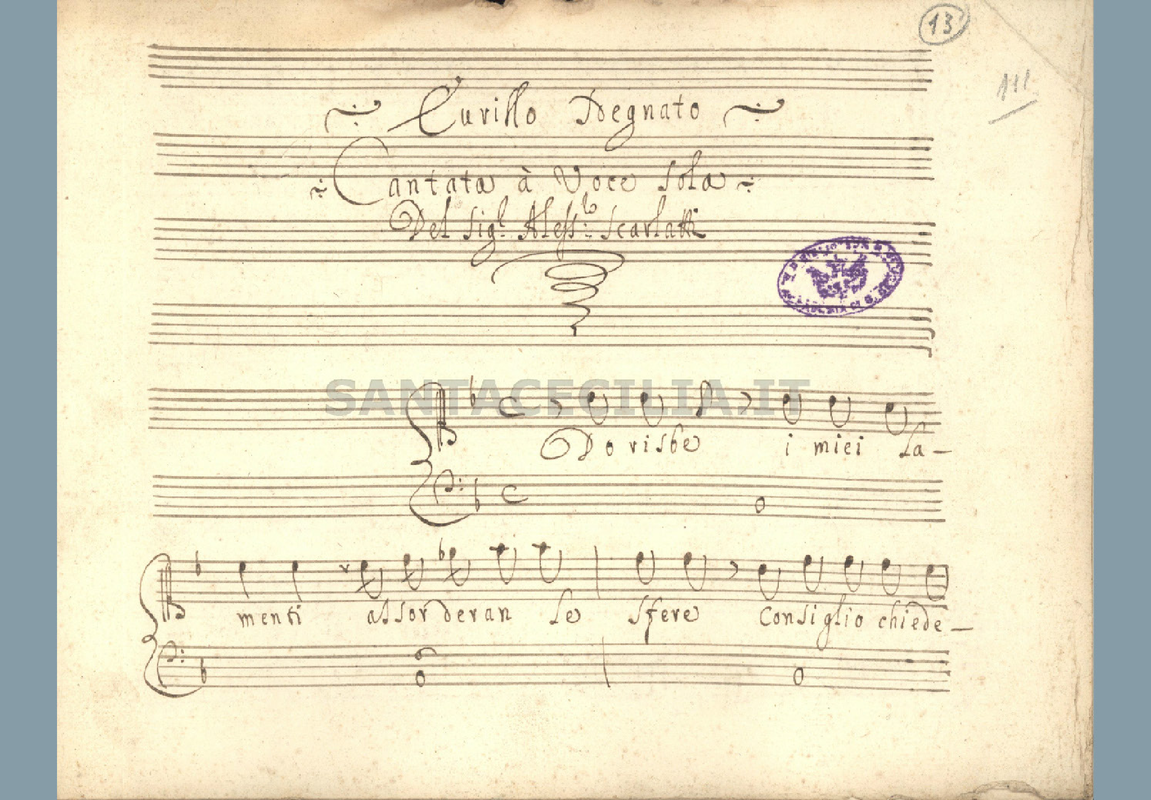 13
111
Eurillo Sdegnato
Cantata à Voce Sola
Del Sig.r Aless.ro Scarlatti
SANTACECILIA.IT
Dorisbe i miei la-
menti assorderan le sfere Consiglio chiede-